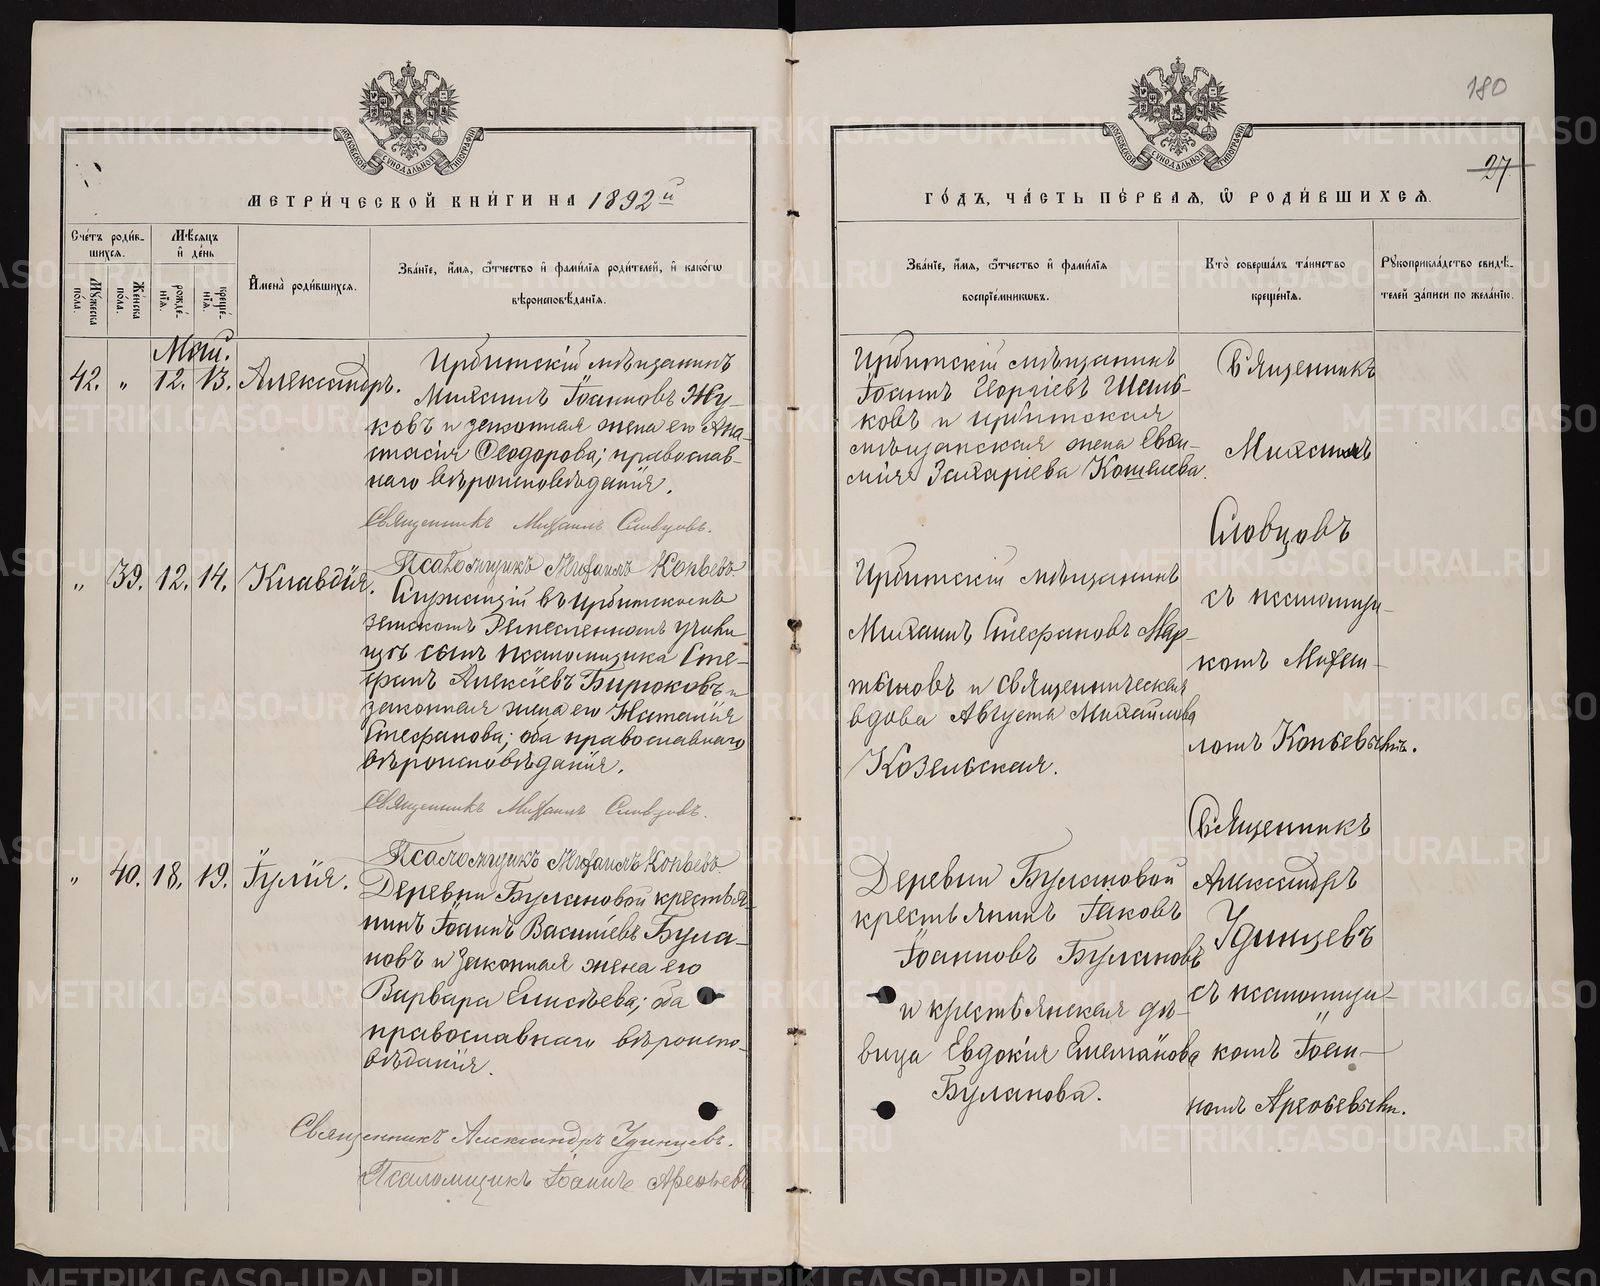 180
27
МОСКОВСКОЙ СУНОДАЛЬНОЙ ТИПОГРАФІИ
МОСКОВСКОЙ СУНОДАЛЬНОЙ ТИПОГРАФІИ
МЕТРИ́ЧЕСКОЙ КНИ́ГИ НА 1892й
ГО́ДЪ, ЧА́СТЬ ПЕ́РВАЯ, Ѽ РОДИ́ВШИХСЯ.
Сче́тъ роди́в-
шихся.
Мꙋ́жеска пола.
Же́нска пола.
Мѣ́сяцъ
и҆ де́нь
рожде́-
нїѧ.
креще́-
нїѧ.
И҆мена̀ роди́вшихся.
Зва́нїе, и҆́мя, ѻ҆́тчество и҆ фами́лїя роди́телей, и҆ како́гѡ
вѣроисповѣ́данїя.
Зва́нїе, и҆́мя, ѻ҆́тчество и҆ фами́лїя
воспрїе́мникѡвъ.
Кто̀ соверша́лъ та́инство
креще́нїя.
Рꙋкоприкла́дство свидѣ́-
телей за́писи по жела́нїю.
Май.
42. „ 12. 13. Александръ.
Ирбитскій мѣщанинъ
Михаилъ Іоанновъ Жу-
ковъ и законная жена его Ана-
стасія Ѳеодорова; православ-
наго вѣроисповѣданія.
Священникъ Михаилъ Словцовъ.
Псаломщикъ Михаилъ Копьевъ.
Ирбитскій мѣщанинъ
Іоаннъ Георгіевъ Шель-
ковъ и ирбитская
мѣщанская жена Евѳи-
мія Захаріева Кошелева.
Священникъ
Михаилъ
Словцовъ
съ псаломщи-
комъ Михаи-
ломъ Копьевымъ.
„ 39. 12. 14. Клавдія.
Служащій въ Ирбитскомъ
земскомъ Ремесленномъ учили
щѣ сынъ псаломщика Сте-
фанъ Алексіевъ Бирюковъ и
законная жена его Наталія
Стефанова; оба православнаго
вѣроисповѣданія.
Священникъ Михаилъ Словцовъ.
Псаломщикъ Михаилъ Копьевъ.
Ирбитскій мѣщанинъ
Михаилъ Стефановъ Мар-
тыновъ и священническая
вдова Августа Михайлова
Козельская.
„ 40. 18. 19. Іулія.
Деревни Булановой крестья-
нинъ Іоаннъ Василіевъ Була-
новъ и законная жена его
Варвара Елисѣева; оба
православнаго вѣроиспо-
вѣданія.
Священникъ Александръ Удинцевъ.
Псаломщикъ Іоаннъ Арефьевъ
Деревни Булановой
крестьянинъ Іаковъ
Іоанновъ Булановъ
и крестьянская дѣ-
вица Евдокія Емеліанова
Буланова.
Священникъ
Александръ
Удинцевъ
съ псаломщи-
комъ Іоан-
номъ Арефьевымъ.
METRIKI.GASO-URAL.RU